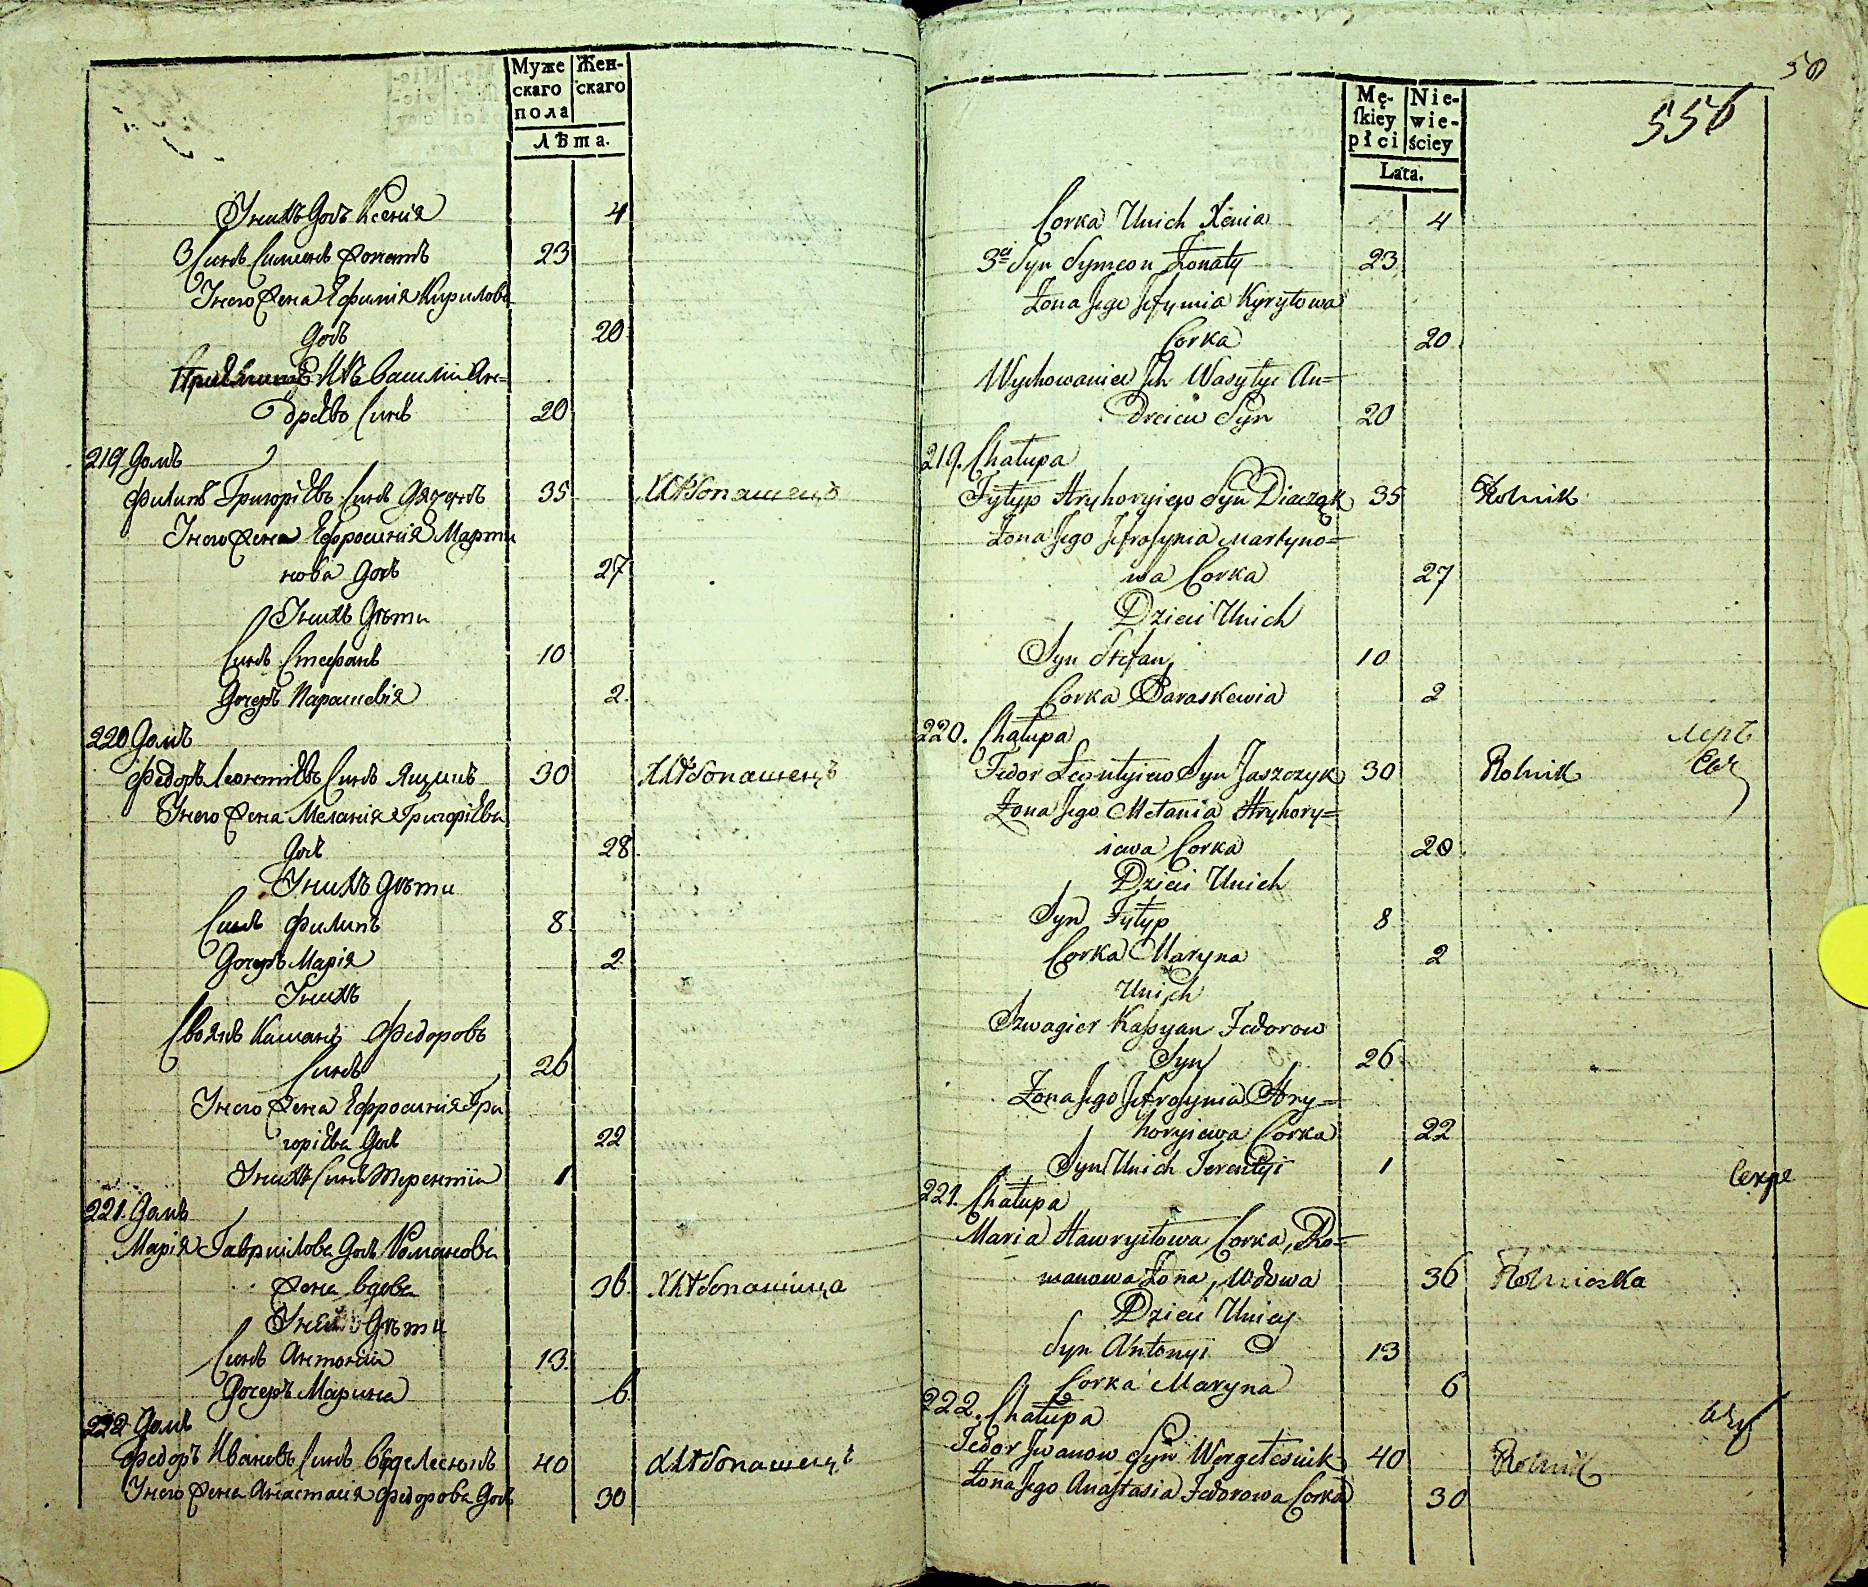 Муже
скаго
пола
Жен-
скаго
Лѣта.
Унихъ Дочь Ксенія 4
3 Синъ Симеонъ Жонатъ 23
Унего Жена Ефимія Кирилова
Дочь 20
Ихъ Василій Ан=
дрѣевъ Синъ 20
219 Домъ
Филипъ Григоріевъ Синъ Дячукъ 35 Хлѣбопашецъ
Унего Жена Ефросинія Марти
нова Дочь 27
Унихъ Дѣти
Синъ Стефанъ 10
Дочеръ Парашевія 2.
220 Домъ
Федоръ Леонтіевъ Синъ Ящикъ 30 Хлѣбопашецъ
Унего Жена Меланія Григоріева
Дочь 28.
Унихъ Дѣти
Синъ Филипъ 8
Дочеръ Марія 2
Унихъ
Своякъ Касианъ Федоровъ
Синъ 26
Унего Жена Ефросинія Гри
горіева Дочь 22
Унихъ Синъ Терентій 1
221. Домъ
Марія Гавриілова Дочь Романова
Жена Вдова 36. Хлѣбопашица
Унея Дѣти
Синъ Антоній 13.
Дочеръ Марина 6.
222 Домъ
Федоръ Ивановъ Синъ 40 Хлѣбопашецъ
Унего Жена Анастасія Федорова Дочь 30
50
556
Mę-
skiey
płci
Nie-
wie-
ściey
Lata.
Corka Unich Xenia 4
3ci Syn Symeon Żonaty 23
Żona Jego Jefymia Kyryłowa
Corka 20
Wychowaniec Ich Wasyłyi An=
dreiew Syn 20
219. Chałupa
Fyłyp Hryhoryiew Syn Diaczuk 35 Rolnik
Żona Jego Jefrosynia Martyno=
wa Corka 27
Dzieci Unich
Syn Stefan 10
Corka Paraskewia 2
220. Chałupa
Fedor Leontyiew Syn Jaszczyk 30 Rolnik
Żona Jego Mełania Hryhory=
iewa Corka 28
Dzieci Unich
Syn Fyłyp 8
Corka Maryna 2
Unich
Szwagier Kasyan Fedorow
Syn 26
Żona Jego Jefrosynia Hry=
horyiewa Corka 22
Syn Unich Terentyi 1
Секре
221. Chałupa
Maria Hawryłowa Corka, Ro=
manowa Żona, Wdowa 36 Rolniczka
Dzieci Uniey
Syn Antonyi 13
Corka Maryna 6
222. Chałupa
Fedor Iwanow Syn Wergełesiuk 40 Rolnik
Żona Jego Anastasia Fedorowa Corka 30